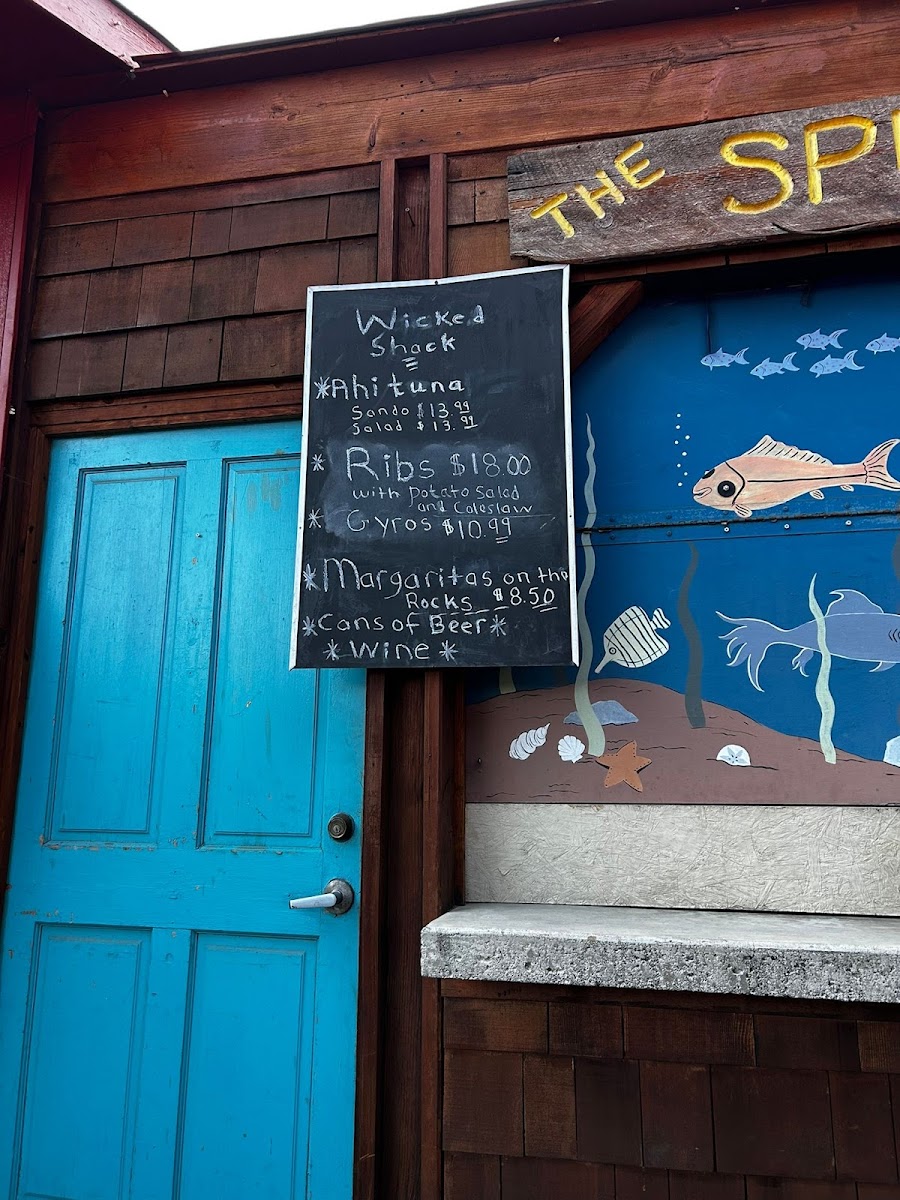 THE SP
Wicked
Shack
*Ahi tuna
Sando $13.99
Salad $13.99
* Ribs $18.00
with potato Salad
and Coleslaw
* Gyros $10.99
*Margaritas on the
Rocks $8.50
*Cans of Beer*
*Wine*